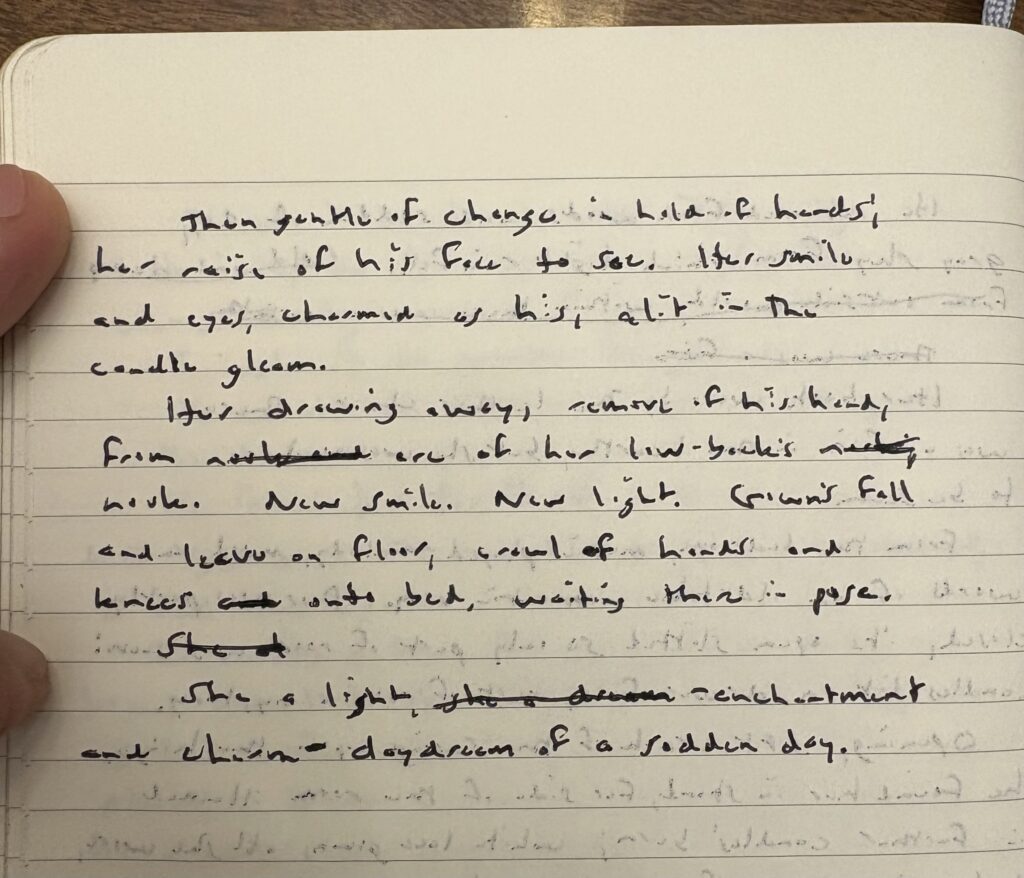 Then gentle of change in hold of hands;
her raise of his face to see. Her smile
and eyes, charmed as his, alit in the
candle gleam.
Her drawing away, remove of his hand,
from arc of her low-back's
nook. New smile. New light. Gown's fall
and leave on floor, crawl of hands and
knees onto bed, waiting there in pose.
She
She a light, she a dream - enchantment
and charm - daydream of a sodden day.